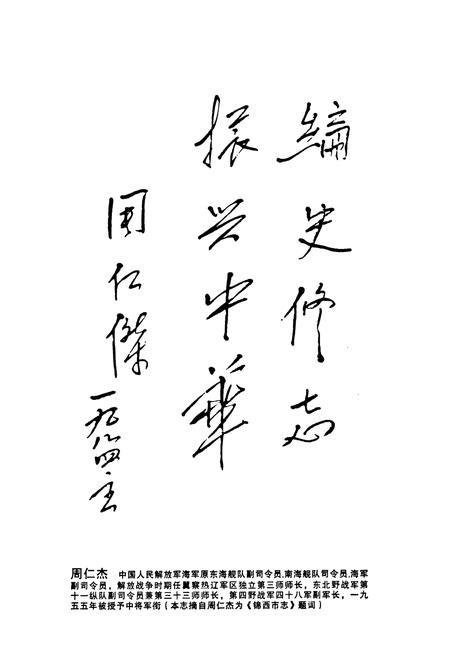 编史修志
振兴中华
周仁傑
一九八四.
周仁杰 中国人民解放军海军原东海舰队副司令员,南海舰队司令员,海军
副司令员，解放战争时期任冀察热辽军区独立第三师师长，东北野战军第
十一纵队副司令员兼第三十三师师长，第四野战军四十八军副军长，一九
五五年被授予中将军衔（本志摘自周仁杰为《锦西市志》题词）